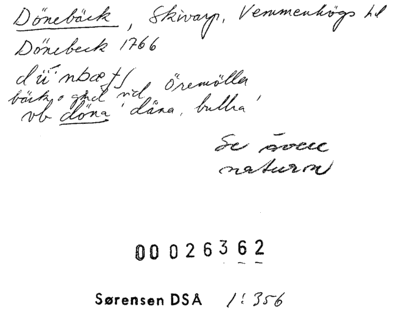 Dönebäck, Skivarp, Vemmenhögs hd
Dönebeck 1766
bäck o gård vid Öremölla
vb döna 'dåna, bullra'
Se även
naturn
00026362
Sørensen DSA 1:356